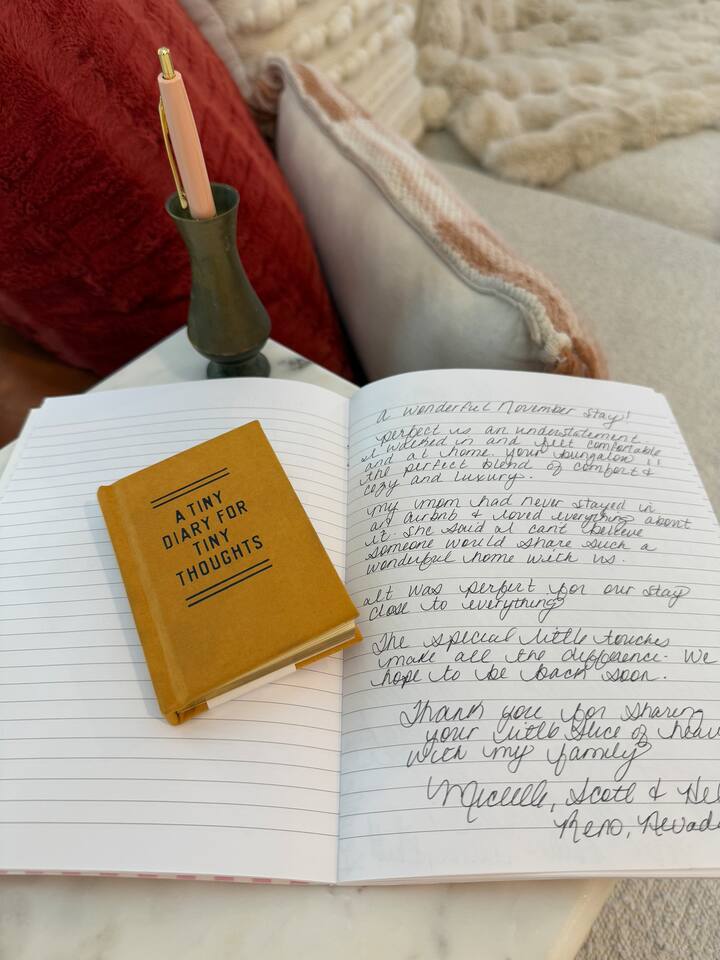 A TINY
DIARY FOR
TINY
THOUGHTS
A wonderful November stay!
perfect is an understatement
I walked in and felt comfortable
and at home. your bungalow is
the perfect blend of comfort &
cozy and luxury.
My mom had never stayed in
an Airbnb & loved everything about
it. She said I cant believe
someone would share such a
wonderful home with us.
It was perfect for our stay
close to everything
The special little touches
make all the difference. We
hope to be back soon.
Thank you for sharing
your little slice of
with my family
Michelle, Scott &
Reno,